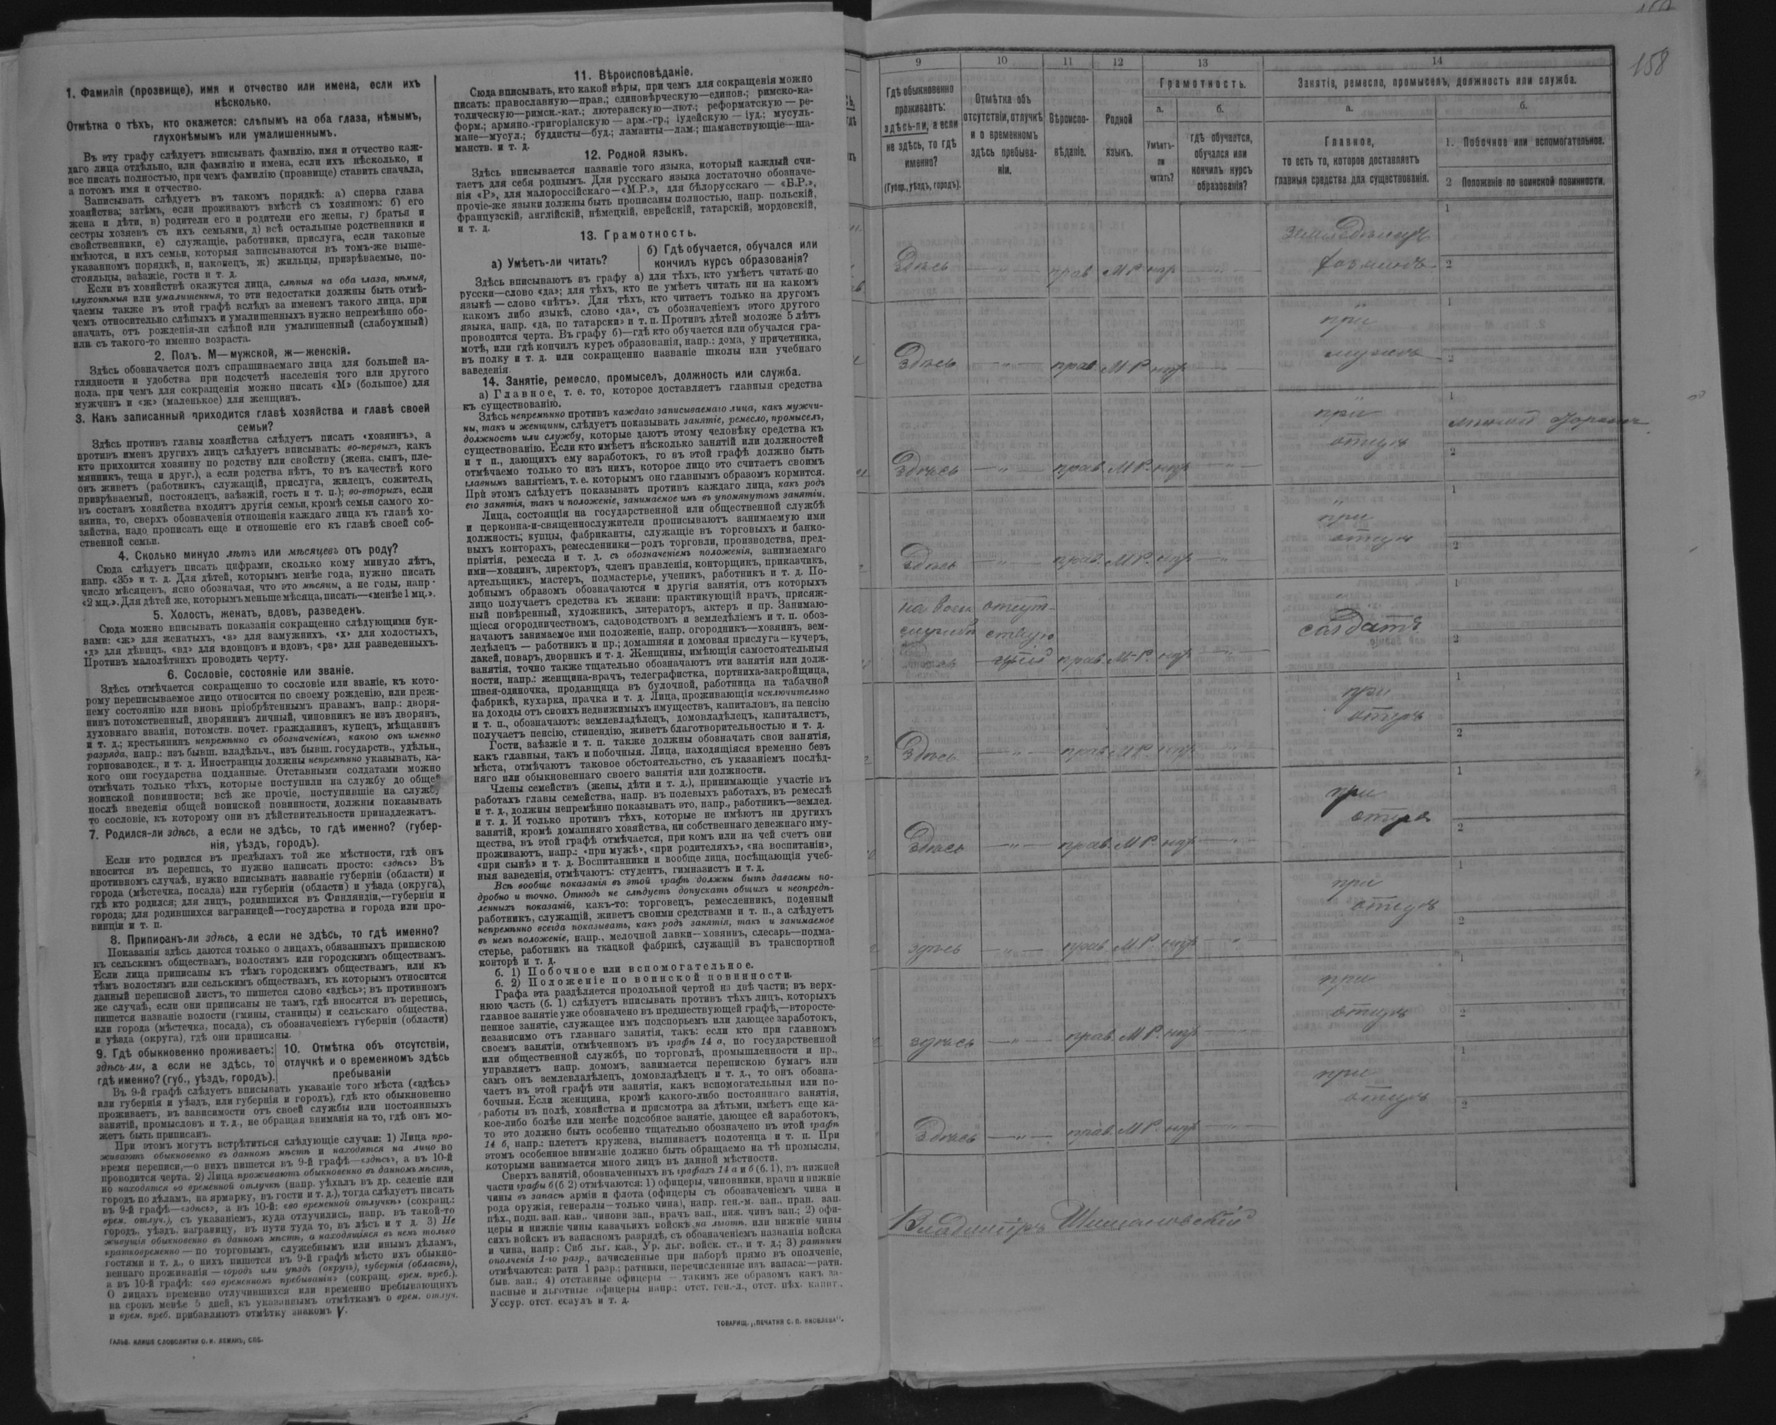 1. Фамилія (прозвище), имя и отчество или имена, если ихъ
нѣсколько.
Отмѣтка о тѣхъ, кто окажется: слѣпымъ на оба глаза, нѣмымъ,
глухонѣмымъ или умалишеннымъ.
Въ эту графу слѣдуетъ вписывать фамилію, имя и отчество каж-
даго лица отдѣльно, или фамилію и имена, если ихъ нѣсколько, и
все писать полностью, при чемъ фамилію (прозвище) ставить сначала,
а потомъ имя и отчество.
Записывать слѣдуетъ въ такомъ порядкѣ: а) сперва глава
хозяйства; затѣмъ, если проживаютъ вмѣстѣ съ хозяиномъ: б) его
жена и дѣти, в) родители его и родители его жены, г) братья и
сестры хозяевъ съ ихъ семьями, д) всѣ остальные родственники и
свойственники, е) служащіе, работники, прислуга, если таковые
имѣются, и ихъ семьи, которыя записываются въ томъ-же выше-
указанномъ порядкѣ, и, наконецъ, ж) жильцы, призрѣваемые, по-
стояльцы, заѣзжіе, гости и т. д.
Если въ хозяйствѣ окажутся лица, слѣпыя на оба глаза, нѣмыя,
глухонѣмыя или умалишенныя, то эти недостатки должны быть отмѣ-
чаемы также въ этой графѣ вслѣдъ за именемъ такого лица, при
чемъ относительно слѣпыхъ и умалишенныхъ нужно непремѣнно обо-
значать, отъ рожденія-ли слѣпой или умалишенный (слабоумный)
или съ такого-то именно возраста.
2. Полъ. М—мужской, ж—женскій.
Здѣсь обозначается полъ спрашиваемаго лица для большей на-
глядности и удобства при подсчетѣ населенія того или другого
пола, при чемъ для сокращенія можно писать «М» (большое) для
мужчинъ и «ж» (маленькое) для женщинъ.
3. Какъ записанный приходится главѣ хозяйства и главѣ своей
семьи?
Здѣсь противъ главы хозяйства слѣдуетъ писать «хозяинъ», а
противъ именъ другихъ лицъ слѣдуетъ вписывать: во-первыхъ, какъ
кто приходится хозяину по родству или свойству (жена, сынъ, пле-
мянникъ, теща и друг.), а если родства нѣтъ, то въ качествѣ кого
онъ живетъ (работникъ, служащій, прислуга, жилецъ, сожитель,
призрѣваемый, постоялецъ, заѣзжій, гость и т. п.); во-вторыхъ, если
въ составъ хозяйства входятъ другія семьи, кромѣ семьи самого хо-
зяина, то, сверхъ обозначенія отношенія каждаго лица къ главѣ хо-
зяйства, надо прописать еще и отношеніе его къ главѣ своей соб-
ственной семьи.
4. Сколько минуло лѣтъ или мѣсяцевъ отъ роду?
Сюда слѣдуетъ писать цифрами, сколько кому минуло лѣтъ,
напр. «35» и т. д. Для дѣтей, которымъ менѣе года, нужно писать
число мѣсяцевъ, ясно обозначая, что это мѣсяцы, а не годы, напр.
«2 мц.». Для дѣтей же, которымъ меньше мѣсяца, писать—«менѣе 1 мц.».
5. Холостъ, женатъ, вдовъ, разведенъ.
Сюда можно вписывать показанія сокращенно слѣдующими бук-
вами: «ж» для женатыхъ, «з» для замужнихъ, «х» для холостыхъ,
«д» для дѣвицъ, «вд» для вдовцовъ и вдовъ, «рв» для разведенныхъ.
Противъ малолѣтнихъ проводить черту.
6. Сословіе, состояніе или званіе.
Здѣсь отмѣчается сокращенно то сословіе или званіе, къ кото-
рому переписываемое лицо относится по своему рожденію, или преж-
нему состоянію или вновь пріобрѣтеннымъ правамъ, напр.: дворя-
нинъ потомственный, дворянинъ личный, чиновникъ не изъ дворянъ,
духовнаго званія, потомств. почет. гражданинъ, купецъ, мѣщанинъ
и т. д.; крестьянинъ непремѣнно съ обозначеніемъ, какого онъ именно
разряда, напр.: изъ бывш. владѣльч., изъ бывш. государств., удѣльн.,
горнозаводск., и т. д. Иностранцы должны непремѣнно указывать, ка-
кого они государства подданные. Отставными солдатами можно
отмѣчать только тѣхъ, которые поступили на службу до общей
воинской повинности; всѣ же прочіе, поступившіе на службу
послѣ введенія общей воинской повинности, должны показывать
то сословіе, къ которому они въ дѣйствительности принадлежатъ.
7. Родился-ли здѣсь, а если не здѣсь, то гдѣ именно? (губер-
нія, уѣздъ, городъ).
Если кто родился въ предѣлахъ той же мѣстности, гдѣ онъ
вносится въ перепись, то нужно написать просто: «здѣсь» Въ
противномъ случаѣ, нужно вписывать названіе губерніи (области) и
города (мѣстечка, посада) или губерніи (области) и уѣзда (округа),
гдѣ кто родился; для лицъ, родившихся въ Финляндіи,—губерніи и
города; для родившихся заграницей—государства и города или про-
винціи и т. п.
8. Приписанъ-ли здѣсь, а если не здѣсь, то гдѣ именно?
Показанія здѣсь даются только о лицахъ, обязанныхъ припискою
къ сельскимъ обществамъ, волостямъ или городскимъ обществамъ.
Если лица приписаны къ тѣмъ городскимъ обществамъ, или къ
тѣмъ волостямъ или сельскимъ обществамъ, къ которымъ относится
данный переписной листъ, то пишется слово «здѣсь»; въ противномъ
же случаѣ, если они приписаны не тамъ, гдѣ вносятся въ перепись,
пишется названіе волости (гмины, станицы) и сельскаго общества,
или города (мѣстечка, посада), съ обозначеніемъ губерніи (области)
и уѣзда (округа), гдѣ они приписаны.
9. Гдѣ обыкновенно проживаетъ:
здѣсь ли, а если не здѣсь, то
гдѣ именно? (губ., уѣздъ, городъ).
10. Отмѣтка объ отсутствіи,
отлучкѣ и о временномъ здѣсь
пребываніи
Въ 9-й графѣ слѣдуетъ вписывать указаніе того мѣста («здѣсь»
или губернія и уѣздъ, или губернія и городъ), гдѣ кто обыкновенно
проживаетъ, въ зависимости отъ своей службы или постоянныхъ
занятій, промысловъ и т. д., не обращая вниманія на то, гдѣ онъ мо-
жетъ быть приписанъ.
При этомъ могутъ встрѣтиться слѣдующіе случаи: 1) Лица про-
живаютъ обыкновенно въ данномъ мѣстѣ и находятся на лицо во
время переписи,—о нихъ пишется въ 9-й графѣ—«здѣсь», а въ 10-й
проводится черта. 2) Лица проживаютъ обыкновенно въ данномъ мѣстѣ,
но находятся во временной отлучкѣ (напр. уѣхалъ въ др. селеніе или
городъ по дѣламъ, на ярмарку, въ гости и т. д.), тогда слѣдуетъ писать
въ 9-й графѣ—«здѣсь», а въ 10-й: «во временной отлучкѣ» (сокращ.:
врем. отлуч.), съ указаніемъ, куда отлучились, напр. въ такой-то
городъ, уѣздъ, заграницу, въ пути туда то, въ лѣсъ и т д. 3) Не
живущія обыкновенно въ данномъ мѣстѣ, а находящіяся въ немъ только
кратковременно — по торговымъ, служебнымъ или инымъ дѣламъ,
гостями и т. д., о нихъ пишется въ 9-й графѣ мѣсто ихъ обыкно-
веннаго проживанія — городъ или уѣздъ (округъ), губернія (область),
а въ 10-й графѣ: «во временномъ пребываніи» (сокращ. врем. преб.).
О лицахъ временно отлучившихся или временно пребывающихъ
на срокъ менѣе 5 дней, къ указаннымъ отмѣткамъ о врем. отлуч.
и врем. преб. прибавляютъ отмѣтку знакомъ V.
ГАЛЬВ. КЛИШЕ СЛОВОЛИТНИ О. И. ЛЕМАНЪ, СПБ.
11. Вѣроисповѣданіе.
Сюда вписывать, кто какой вѣры, при чемъ для сокращенія можно
писать: православную—прав.; единовѣрческую—единов.; римско-ка-
толическую—римск.-кат.; лютеранскую—лют.; реформатскую — ре-
форм.; армяно-григоріанскую — арм.-гр.; іудейскую — іуд.: мусуль-
мане—мусул.; буддисты—буд.; ламаиты—лам.; шаманствующіе—ша-
манств. и т. д.
12. Родной языкъ.
Здѣсь вписывается названіе того языка, который каждый счи-
таетъ для себя роднымъ. Для русскаго языка достаточно обозначе-
нія «Р», для малороссійскаго—«М.Р.», для бѣлорусскаго — «Б.Р.»,
прочіе-же языки должны быть прописаны полностью, напр. польскій,
французскій, англійскій, нѣмецкій, еврейскій, татарскій, мордовскій,
и т. д.
13. Грамотность.
а) Умѣетъ-ли читать?
б) Гдѣ обучается, обучался или
кончилъ курсъ образованія?
Здѣсь вписываютъ въ графу а) для тѣхъ, кто умѣетъ читать по
русски—слово «да»; для тѣхъ, кто не умѣетъ читать ни на какомъ
языкѣ — слово «нѣтъ». Для тѣхъ, кто читаетъ только на другомъ
какомъ либо языкѣ, слово «да», съ обозначеніемъ этого другого
языка, напр. «да, по татарски» и т. п. Противъ дѣтей моложе 5 лѣтъ
проводится черта. Въ графу б)—гдѣ кто обучается или обучался гра-
мотѣ, или гдѣ кончилъ курсъ образованія, напр.: дома, у причетника,
въ полку и т. д. или сокращенно названіе школы или учебнаго
заведенія.
14. Занятіе, ремесло, промыселъ, должность или служба.
а) Главное, т. е. то, которое доставляетъ главныя средства
къ существованію.
Здѣсь непремѣнно противъ каждаго записываемаго лица, какъ мужчи-
ны, такъ и женщины, слѣдуетъ показывать занятіе, ремесло, промыселъ,
должность или службу, которые даютъ этому человѣку средства къ
существованію. Если кто имѣетъ нѣсколько занятій или должностей
и т п., дающихъ ему заработокъ, то въ этой графѣ должно быть
отмѣчаемо только то изъ нихъ, которое лицо это считаетъ своимъ
главнымъ занятіемъ, т. е. которымъ оно главнымъ образомъ кормится.
При этомъ слѣдуетъ показывать противъ каждаго лица, какъ родъ
его занятія, такъ и положеніе, занимаемое имъ въ упомянутомъ занятіи.
Лица, состоящія на государственной или общественной службѣ
и церковно-и-священнослужители прописываютъ занимаемую ими
должность; купцы, фабриканты, служащіе въ торговыхъ и банко-
выхъ конторахъ, ремесленники—родъ торговли, производства, пред-
пріятія, ремесла и т. д. съ обозначеніемъ положенія, занимаемаго
ими—хозяинъ, директоръ, членъ правленія, конторщикъ, приказчикъ,
артельщикъ, мастеръ, подмастерье, ученикъ, работникъ и т. д. По-
добнымъ образомъ обозначаются и другія занятія, отъ которыхъ
лицо получаетъ средства къ жизни: практикующій врачъ, присяж-
ный повѣренный, художникъ, литераторъ, актеръ и пр. Занимаю-
щіеся огородничествомъ, садоводствомъ и земледѣліемъ и т. п. обоз-
начаютъ занимаемое ими положеніе, напр. огородникъ—хозяинъ, зем-
ледѣлецъ — работникъ и пр.; домашняя и домовая прислуга—кучеръ,
лакей, поваръ, дворникъ и т. д. Женщины, имѣющія самостоятельныя
занятія, точно также тщательно обозначаютъ эти занятія или долж-
ности, напр.: женщина-врачъ, телеграфистка, портниха-закройщица,
швея-одиночка, продавщица въ булочной, работница на табачной
фабрикѣ, кухарка, прачка и т. д. Лица, проживающія исключительно
на доходы отъ своихъ недвижимыхъ имуществъ, капиталовъ, на пенсію
и т. п., обозначаютъ: землевладѣлецъ, домовладѣлецъ, капиталистъ,
получаетъ пенсію, стипендію, живетъ благотворительностью и т. д.
Гости, заѣзжіе и т. п. также должны обозначать свои занятія,
какъ главныя, такъ и побочныя. Лица, находящіяся временно безъ
мѣста, отмѣчаютъ таковое обстоятельство, съ указаніемъ послѣд-
няго или обыкновеннаго своего занятія или должности.
Члены семействъ (жены, дѣти и т. д.), принимающіе участіе въ
работахъ главы семейства, напр. въ полевыхъ работахъ, въ ремеслѣ
и т. д., должны непремѣнно показывать это, напр., работникъ—землед.
и т. д. И только противъ тѣхъ, которые не имѣютъ ни другихъ
занятій, кромѣ домашняго хозяйства, ни собственнаго денежнаго иму-
щества, въ этой графѣ отмѣчается, при комъ или на чей счетъ они
проживаютъ, напр.: «при мужѣ», «при родителяхъ», «на воспитаніи»,
«при сынѣ» и т. д. Воспитанники и вообще лица, посѣщающія учеб-
ныя заведенія, отмѣчаютъ: студентъ, гимназистъ и т. д.
Всѣ вообще показанія въ этой графѣ должны быть даваемы по-
дробно и точно. Отнюдь не слѣдуетъ допускать общихъ и неопредѣ-
ленныхъ показаній, какъ-то: торговецъ, ремесленникъ, поденный
работникъ, служащій, живетъ своими средствами и т. п., а слѣдуетъ
непремѣнно всегда показывать, какъ родъ занятія, такъ и занимаемое
въ немъ положеніе, напр., мелочной лавки—хозяинъ, слесарь—подма-
стерье, работникъ на ткацкой фабрикѣ, служащій въ транспортной
конторѣ и т. д.
б. 1) Побочное или вспомогательное.
б. 2) Положеніе по воинской повинности.
Графа эта раздѣляется продольной чертой на двѣ части; въ верх-
нюю часть (б. 1) слѣдуетъ вписывать противъ тѣхъ лицъ, которыхъ
главное занятіе уже обозначено въ предшествующей графѣ,—второсте-
пенное занятіе, служащее имъ подспорьемъ или дающее заработокъ,
независимо отъ главнаго занятія, такъ: если кто при главномъ
своемъ занятіи, отмѣченномъ въ графѣ 14 а, по государственной
или общественной службѣ, по торговлѣ, промышленности и пр.,
управляетъ напр. домомъ, занимается перепискою бумагъ или
самъ онъ землевладѣлецъ, домовладѣлецъ и т. д., то онъ обозна-
чаетъ въ этой графѣ эти занятія, какъ вспомогательныя или по-
бочныя. Если женщина, кромѣ какого-либо постояннаго занятія,
работы въ полѣ, хозяйства и присмотра за дѣтьми, имѣетъ еще ка-
кое-либо болѣе или менѣе подсобное занятіе, дающее ей заработокъ,
то это должно быть особенно тщательно обозначено въ этой графѣ
14 б, напр.: плететъ кружева, вышиваетъ полотенца и т. п. При
этомъ особенное вниманіе должно быть обращаемо на тѣ промыслы,
которыми занимается много лицъ въ данной мѣстности.
Сверхъ занятій, обозначенныхъ въ графахъ 14 а и б (б. 1), въ нижней
части графы б (б 2) отмѣчаются: 1) офицеры, чиновники, врачи и нижніе
чины въ запасѣ арміи и флота (офицеры съ обозначеніемъ чина и
рода оружія, генералы—только чина), напр. ген.-м. зап., прап. зап.
пѣх., подп. зап. кав., чиновн зап., врачъ зап., ниж. чинъ зап.; 2) офи-
церы и нижніе чины казачьихъ войскъ на льготѣ, или нижніе чины
сихъ войскъ въ запасномъ разрядѣ, съ обозначеніемъ названія войска
и чина, напр: Сиб льг. кав., Ур. льг. войск. ст., и т. д.; 3) ратники
ополченія 1-го разр., зачисленные при наборѣ прямо въ ополченіе,
отмѣчаются: ратн 1 разр.; ратники, перечисленные изъ запаса:—ратн.
быв. зап.; 4) отставные офицеры — такимъ же образомъ какъ за-
пасные и льготные офицеры напр.: отст. ген.-л., отст. пѣх. капит.,
Уссур. отст. есаулъ и т. д.
ТОВАРИЩ. „ПЕЧАТНЯ С. П. ЯКОВЛЕВА“.
158
9 10 11 12 13 14
Гдѣ обыкновенно
проживаетъ:
здѣсь-ли, а если
не здѣсь, то гдѣ
именно?
(Губер., уѣздъ, городъ).
Отмѣтка объ
отсутствіи, отлучкѣ
и о временномъ
здѣсь пребыва-
ніи.
Вѣроиспо-
вѣданіе.
Родной
языкъ.
Грамотность.
а.
Умѣетъ-
ли
читать?
б.
гдѣ обучается,
обучался или
кончилъ курсъ
образованія?
Занятіе, ремесло, промыселъ, должность или служба.
а.
Главное,
то есть то, которое доставляетъ
главныя средства для существованія.
б.
1. Побочное или вспомогательное.
2 Положеніе по воинской повинности.
1
Здѣсь прав М Р 2
при 1
Здѣсь прав. М Р 2
при 1
Здѣсь прав М Р 2
при 1
Здѣсь прав. М Р 2
1
солдатъ
прав. М-Р. 2
при 1
Здѣсь прав М Р 2
при 1
Здѣсь прав М Р 2
при 1
здѣсь прав М Р. 2
при 1
здѣсь прав. М Р 2
при 1
Здѣсь прав М Р 2
Владиміръ